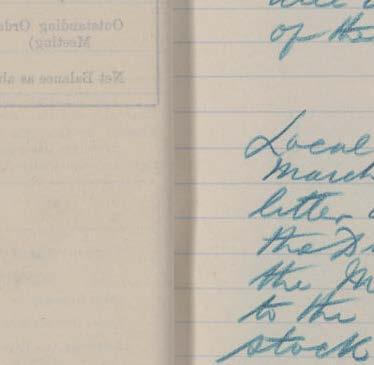 Outstanding Orde
Meeting)
Net Balance as ab
of the
Local
March
letter
the D
the M
to the
stock